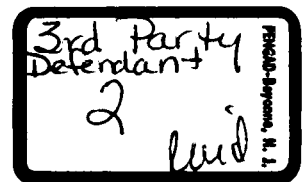 3rd Party
Defendant
2
PENGAD-Bayonne, N. J.